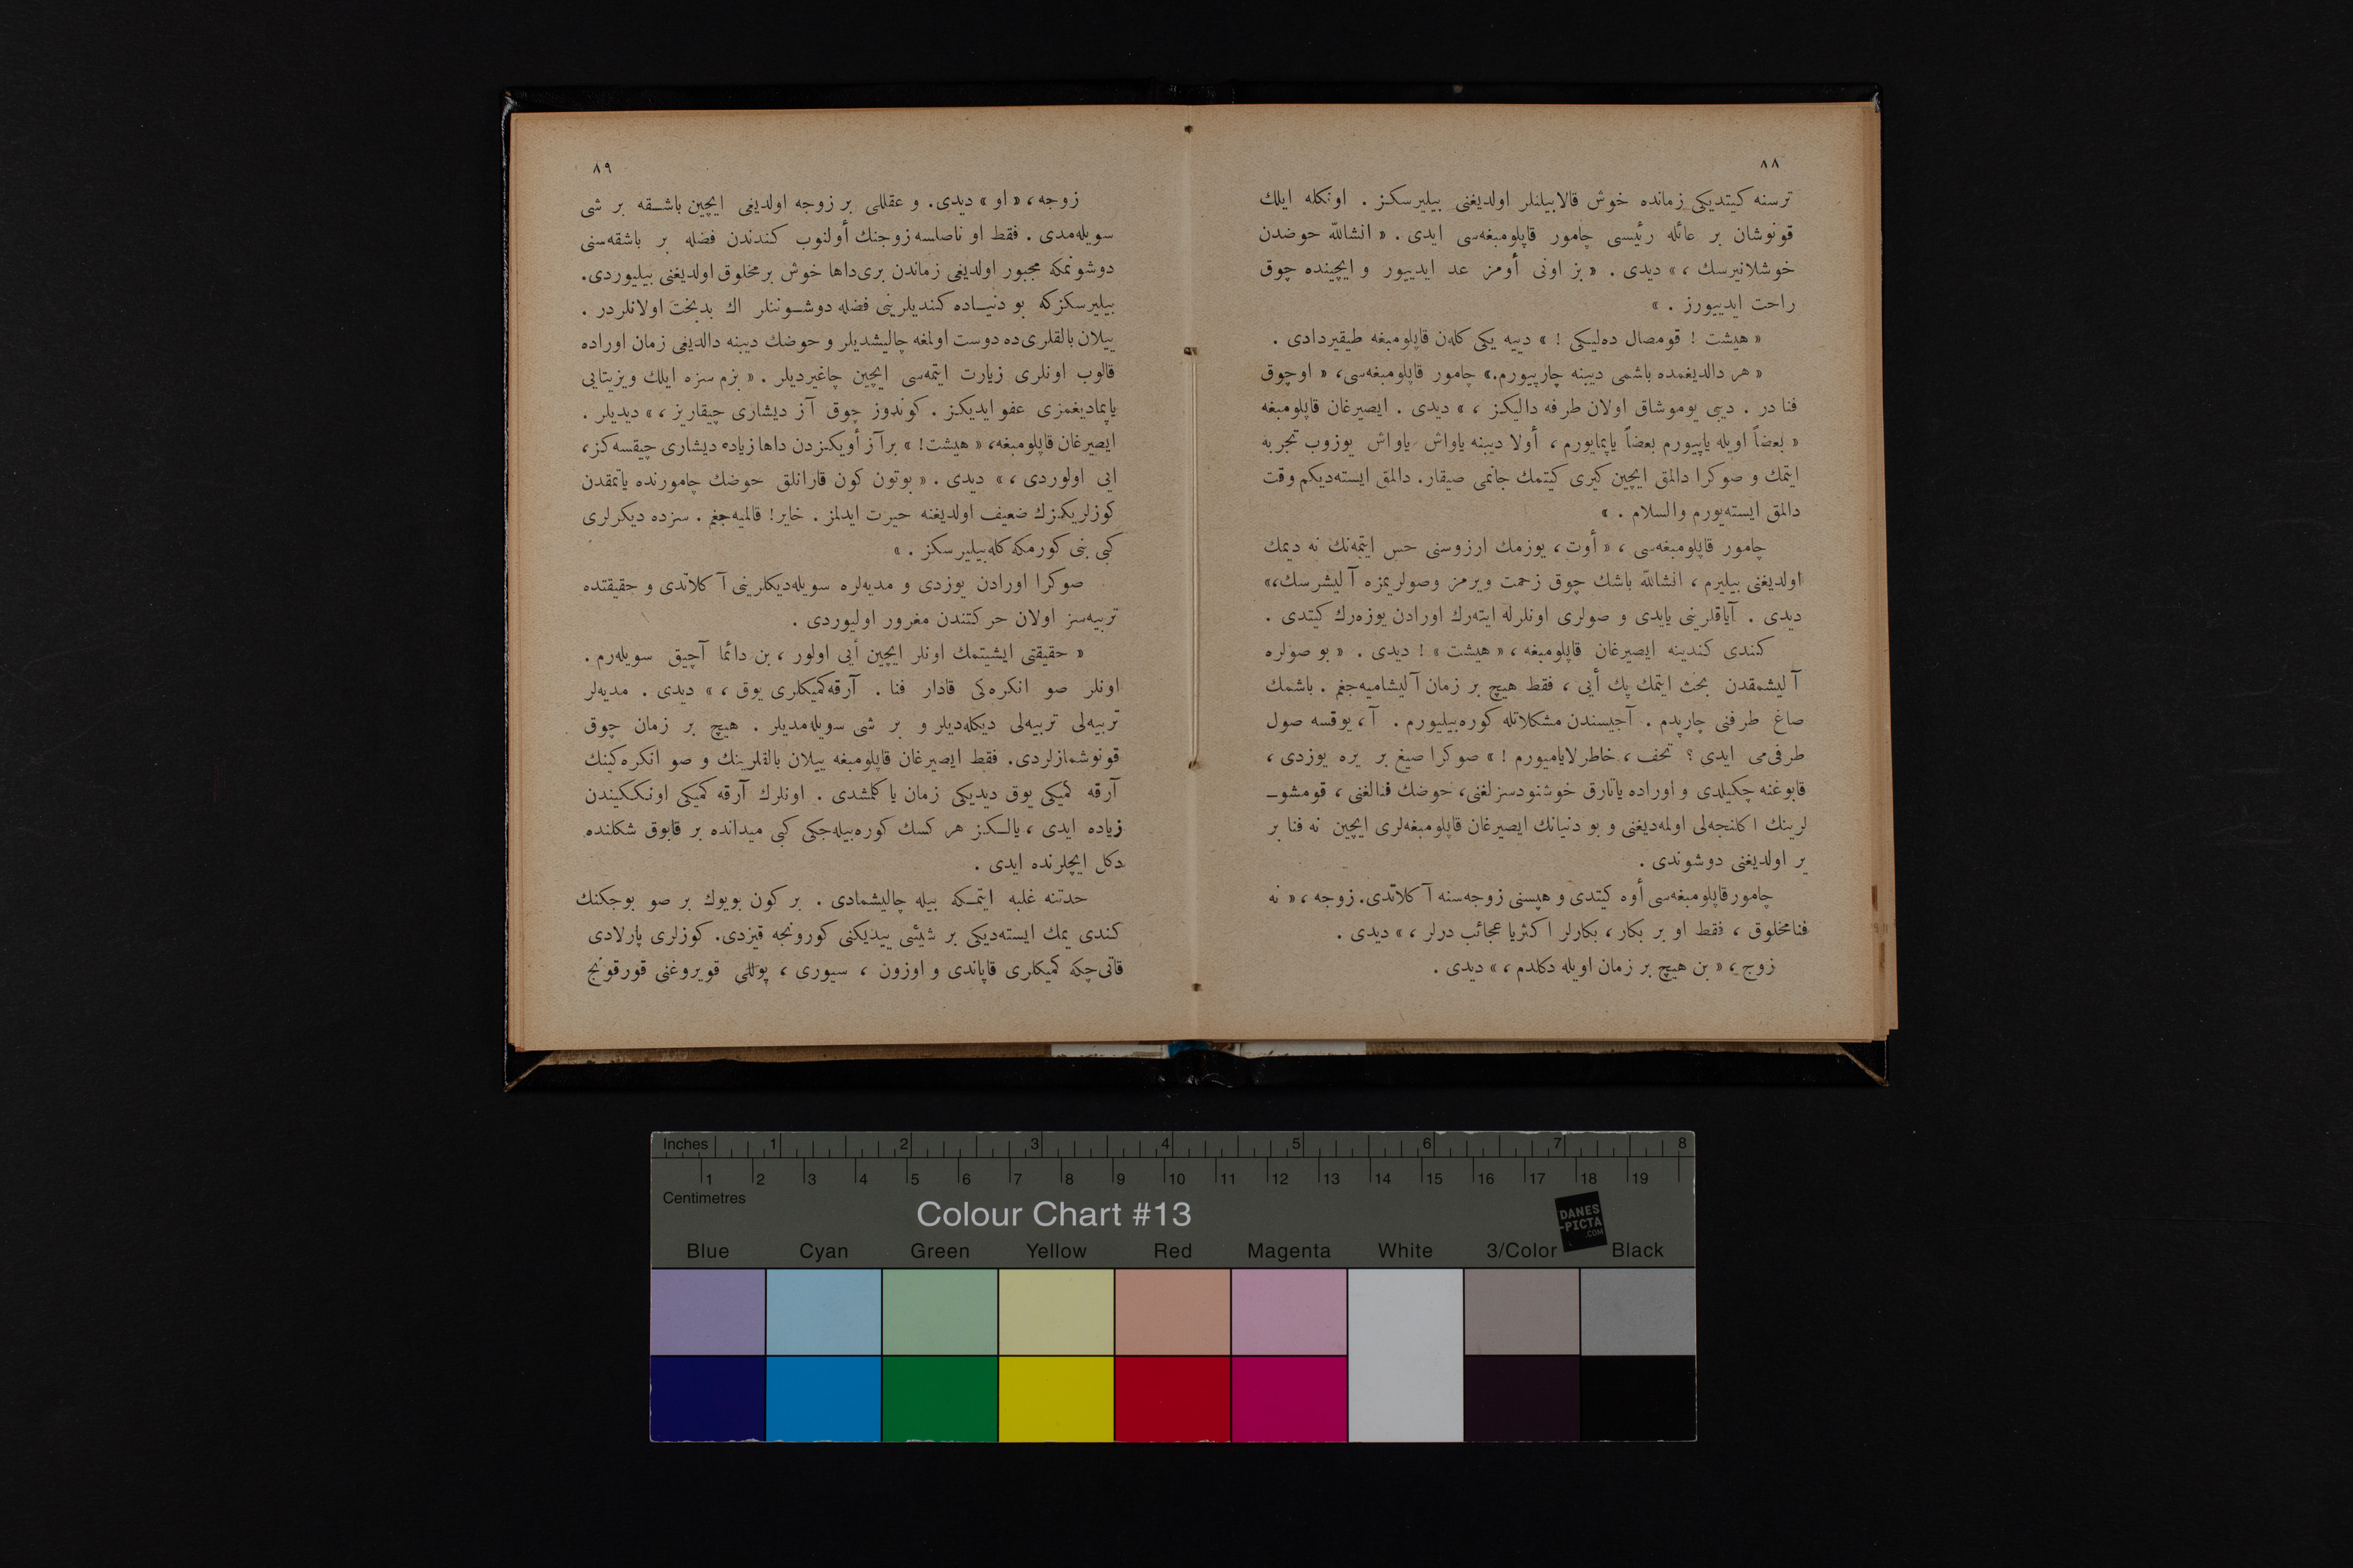 ٨٨
ترسنه كيتديكى زمانده خوش قالابيلنلر اولديغنى بيليرسكـز . اونكله ايلك
قونوشان بر عائله رئيسى چامور قاپلومبغه‌سى ايدى . « انشاالله حوضدن
خوشلانيرسك ، » ديدى . « بز اونى أومز عد ايدييور و ايچينده چوق
راحت ايدييورز . »
« هيشت ! قومصال ده‌ليكى ! » دييه يكى كلەن قاپلومبغه طيقيردادى .
« هر دالديغمده باشمى ديبنه چارپيورم.» چامور قاپلومبغه‌سى، « اوچوق
فنا در . ديبى يوموشاق اولان طرفه داليكـز ، » ديدى . ايصيرغان قاپلومبغه
« بعضاً اويله ياپييورم بعضاً ياپمايورم ، أولا ديبنه ياواش ياواش يوزوب تجربه
ايتمك و صوكرا دالمق ايچين كيرى كيتمك جانمى صيقار. دالمق ايسته‌ديكم وقت
دالمق ايسته‌يورم والسلام . »
چامور قاپلومبغه‌سى ، « أوت ، يوزمك ارزوسنى حس ايتمه‌نك نه ديمك
اولديغنى بيليرم ، انشاالله باشك چوق زحمت ويرمز وصولريمزه آليشرسك،»
ديدى . آياقلرينى يايدى و صولرى اونلرله ايته‌رك اورادن يوزه‌رك كيتدى .
كندى كندينه ايصيرغان قاپلومبغه ، « هيشت » ! ديدى . « بو صولره
آليشمقدن بحث ايتمك پك أيى ، فقط هيچ بر زمان آليشاميه‌جغم . باشمك
صاغ طرفنى چارپدم . آجيسندن مشكلاتله كوره‌بيليورم . آ ، يوقسه صول
طرفى‌مى ايدى ؟ تحف ، خاطرلاياميورم ! » صوكرا صيغ بر يره يوزدى ،
قابوغنه چكيلدى و اوراده ياتارق خوشنودسزلغنى، حوضك فنالغنى ، قومشو-
لرينك اكلنجه‌لى اولمه‌ديغنى و بو دنيانك ايصيرغان قاپلومبغه‌لرى ايچين نه فنا بر
ير اولديغنى دوشوندى .
چامور قاپلومبغه‌سى أوه كيتدى و هپسنى زوجه‌سنه آكلاتدى. زوجه ، « نه
فنا مخلوق ، فقط او بر بكار ، بكارلر اكثريا عجائب درلر ، » ديدى .
زوج ، « بن هيچ بر زمان اويله دكلدم ، » ديدى .
٨٩
زوجه ، « او » ديدى. و عقللى بر زوجه اولديغى ايچين باشـقه بر شى
سويله‌مدى . فقط او ناصلسه زوجنك أولنوب كندندن فضله بر باشقه‌سنى
دوشونمكه مجبور اولديغى زماندن برى‌داها خوش بر مخلوق اولديغنى بيليوردى.
بيليرسكزكه بو دنيـاده كنديلرينى فضله دوشـوننلر اك بدبخت اولانلردر .
ييلان بالقلرى‌ده دوست اولمغه چاليشديلر و حوضك ديبنه دالديغى زمان اوراده
قالوب اونلرى زيارت ايتمه‌سى ايچين چاغيرديلر . « بزم سزه ايلك ويزيتايى
ياپماديغمزى عفو ايديكـز . كوندوز چوق آز ديشارى چيقاريز ، » ديديلر .
ايصيرغان قاپلومبغه، « هيشت! » برآز أويكـزدن داها زياده ديشارى چيقسه‌كز،
ايى اولوردى ، » ديدى . « بوتون كون قارانلق حوضك چامورنده ياتمقدن
كوزلريكـزك ضعيف اولديغنه حيرت ايدلمز . خاير! قالميه‌جغم . سزده ديكرلرى
كبى بنى كورمكه كله‌بيليرسكز . »
صوكرا اورادن يوزدى و مديه‌لره سويله‌ديكلرينى آكلاتدى و حقيقتده
تربيه‌سز اولان حركتندن مغرور اوليوردى .
« حقيقتى ايشيتمك اونلر ايچين أيى اولور ، بن دائما آچيق سويله‌رم .
اونلر صو انكره‌كى قادار فنا . آرقه‌كميكلرى يوق ، » ديدى . مديه‌لر
تربيه‌لى تربيه‌لى ديكله‌ديلر و بر شى سويله‌مديلر . هيچ بر زمان چوق
قونوشمازلردى. فقط ايصيرغان قاپلومبغه ييلان بالقلرينك و صو انكره‌كينك
آرقه كميكى يوق ديديكى زمان ياكلمشدى . اونلرك آرقه كميكى اونككيندن
زياده ايدى ، يالـكـز هر كسك كوره‌بيله‌جكى كبى ميدانده بر قابوق شكلنده
دكل ايچلرنده ايدى .
حدتنه غلبه ايتمـكه بيله چاليشمادى . بر كون بويوك بر صو بوجكنك
كندى يمك ايسته‌ديكى بر شيئى ييديكنى كورونجه قيزدى. كوزلرى پارلادى
قاتى‌چكه كميكلرى قاپاندى و اوزون ، سيورى ، پوللى قويروغنى قورقونج
Inches 1 2 3 4 5 6 7 8
1 2 3 4 5 6 7 8 9 10 11 12 13 14 15 16 17 18 19
Centimetres
Colour Chart #13
DANES
-PICTA
.COM
Blue Cyan Green Yellow Red Magenta White 3/Color Black